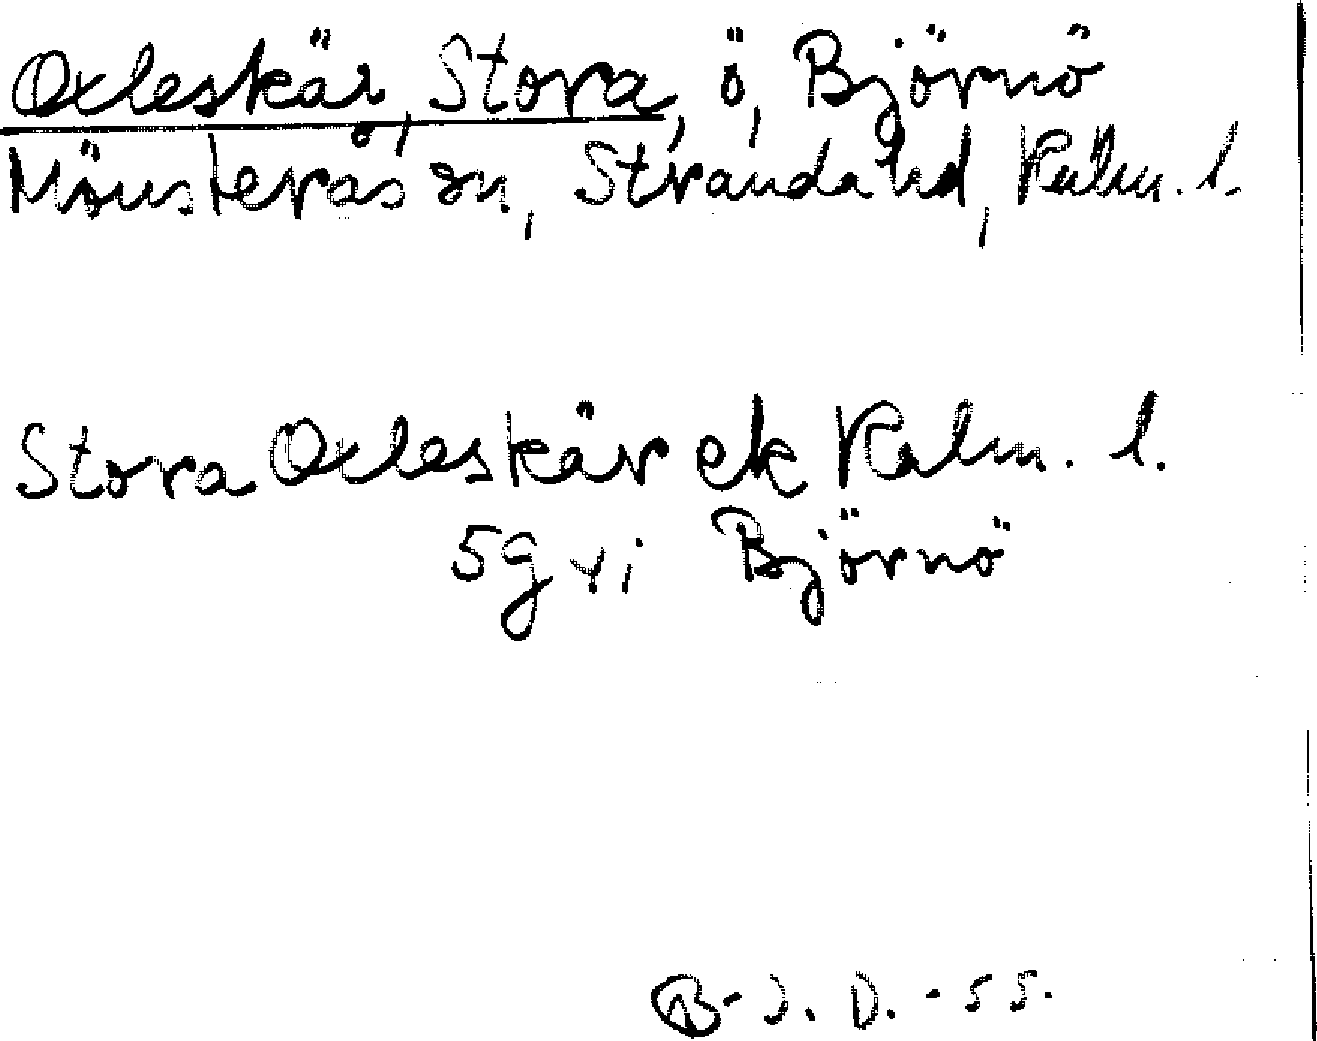 Oxleskär, Stora, ö, Björnö
Mönsterås sn, Stranda hd, Kalm. l.
Stora Oxleskär ek Kalm. l.
5g vi Björnö
B-J. D. -55.